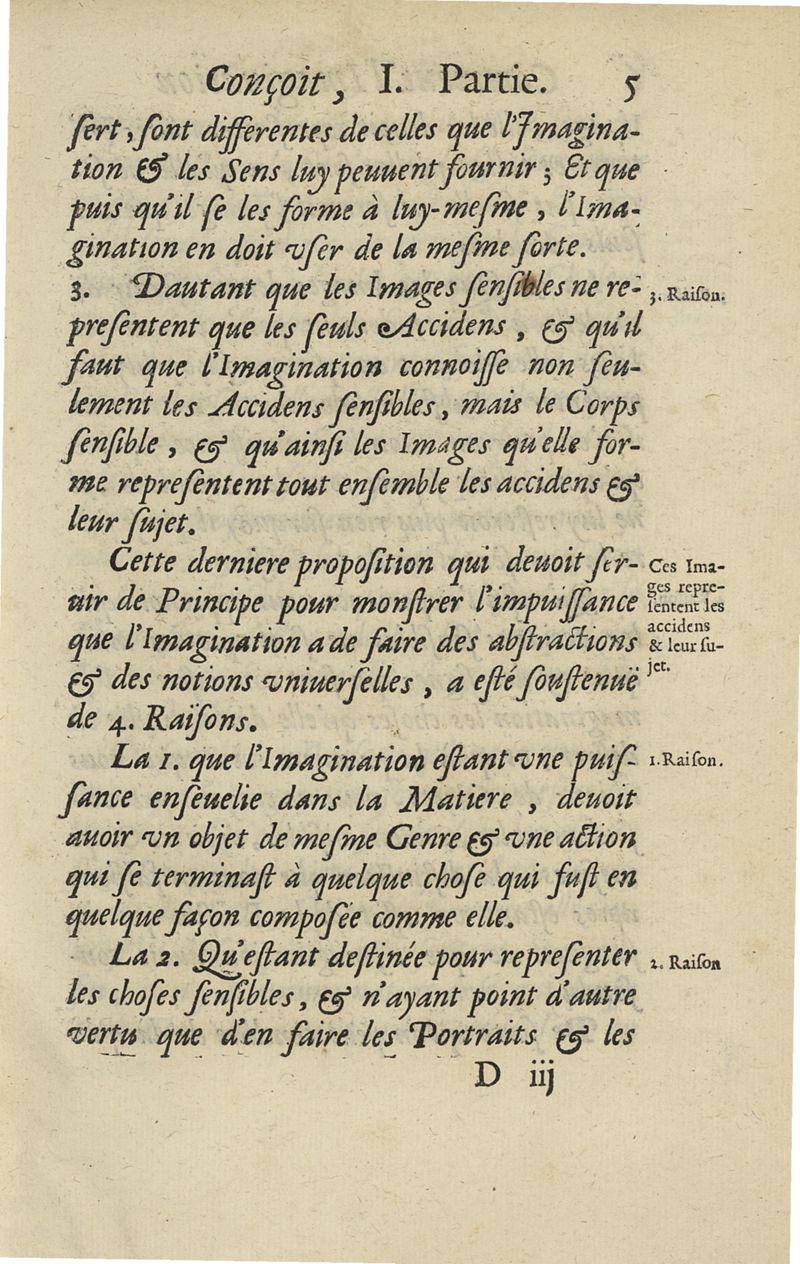 Conçoit, I. Partie. 5
ſert, ſont differentes de celles que l'Imagina-
tion & les Sens luy peuuent fournir; Et que
puis qu'il ſe les forme à luy-meſme, l'Ima-
gination en doit vſer de la meſme ſorte.
3. Dautant que les Images ſenſibles ne re-
3. Raiſon.
preſentent que les ſeuls Accidens, & qu'il
faut que l'Imagination connoiſſe non ſeu-
lement les Accidens ſenſibles, mais le Corps
ſenſible, & qu'ainſi les Images qu'elle for-
me repreſentent tout enſemble les accidens &
leur ſujet.
Cette derniere propoſition qui deuoit ſer-
uir de Principe pour monſtrer l'impuiſſance
que l'Imagination a de faire des abſtractions
& des notions vniuerſelles, a eſté ſouſtenuë
de 4. Raiſons.
Ces Ima-
ges repre-
ſentent les
accidens
& leur ſu-
jet.
La 1. que l'Imagination eſtant vne puiſ-
1. Raiſon.
ſance enſeuelie dans la Matiere, deuoit
auoir vn objet de meſme Genre & vne action
qui ſe terminaſt à quelque choſe qui fuſt en
quelque façon compoſée comme elle.
La 2. Qu'eſtant deſtinée pour repreſenter
2. Raiſon
les choſes ſenſibles, & n'ayant point d'autre
vertu que d'en faire les Portraits & les
D iij